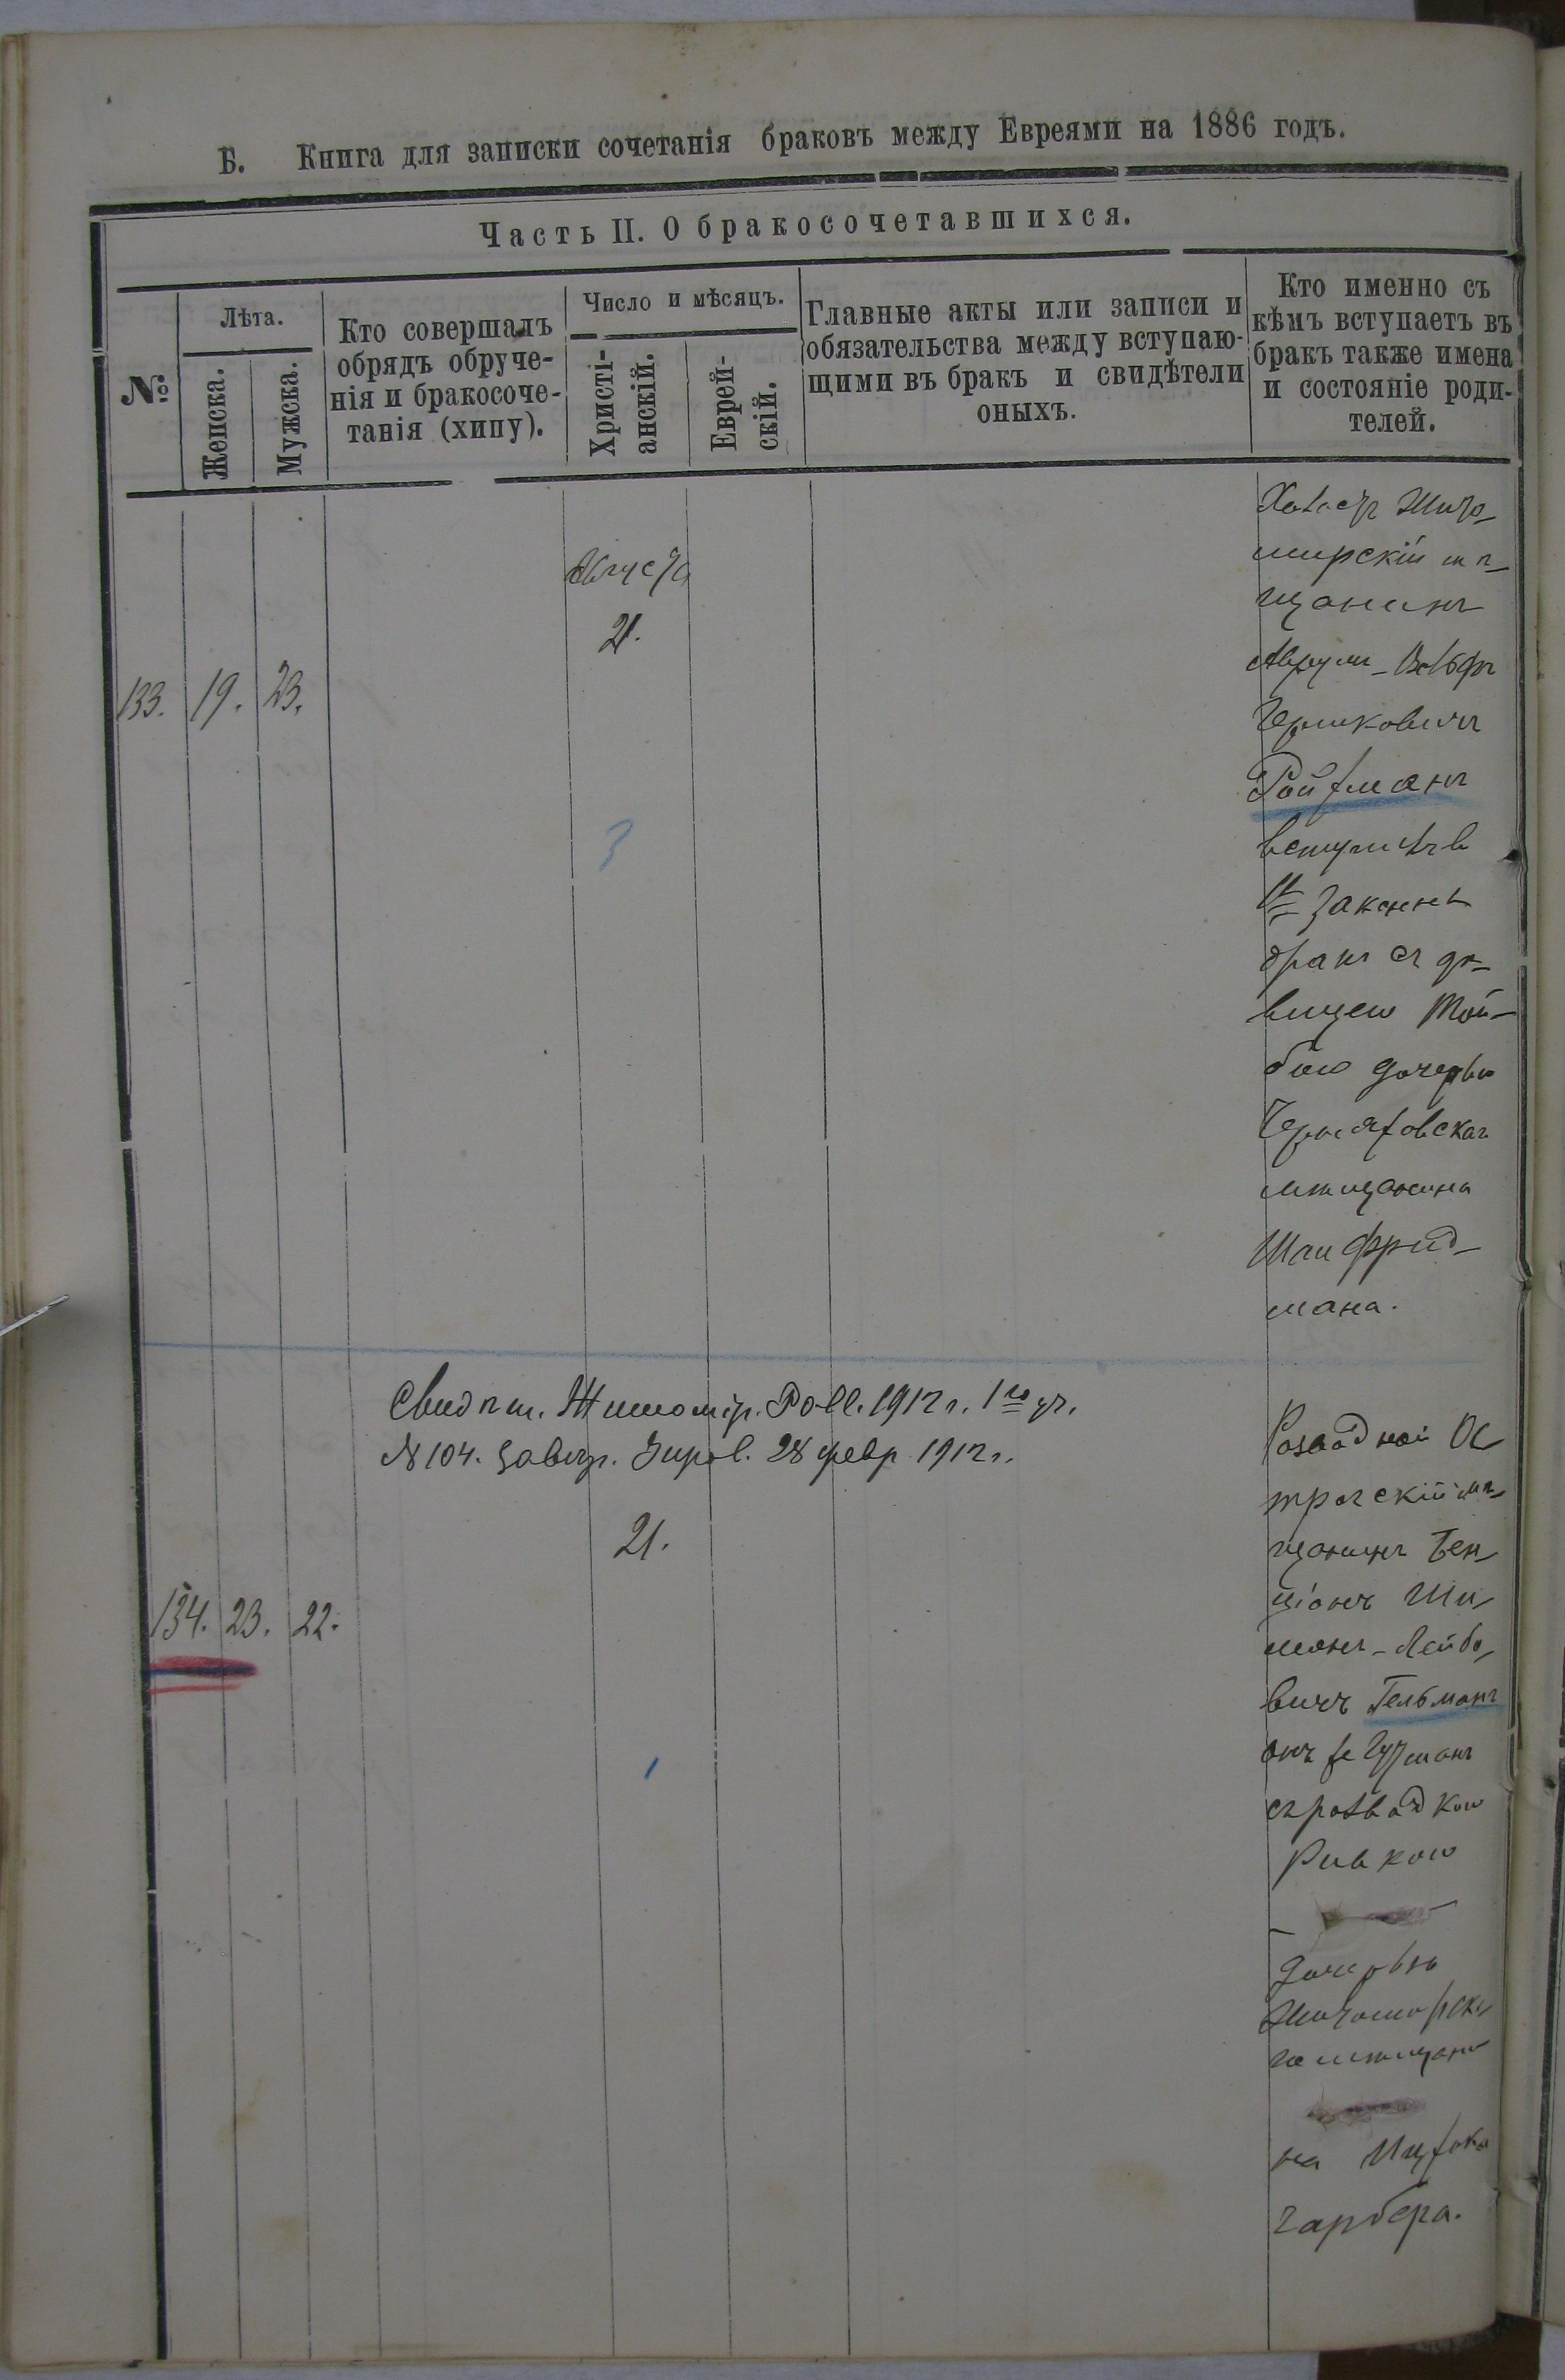 Б. Книга для записки сочетанія браковъ между Евреями на 1886 годъ.
Часть II. О бракосочетавшихся.
№
Лѣта.
Женска.
Мужска.
Кто совершалъ
обрядъ обруче-
нія и бракосоче-
танія (хипу).
Число и мѣсяцъ.
Христі-
анскій.
Еврей-
скій.
Главные акты или записи и
обязательства между вступаю-
щими въ бракъ и свидѣтели
оныхъ.
Кто именно съ
кѣмъ вступаетъ въ
бракъ также имена
и состояніе роди-
телей.
133. 19. 23.
Августа
21.
3
Холостъ Жито-
мирскій мѣ-
щанинъ
Аврумъ-Вольфъ
Гершковичъ
Ройтманъ
вступилъ в
1й законны
бракъ съ дѣ-
вицею Той-
бою дочерью
Черняховскаг
мѣщанина
Шаи Фрид-
мана.
Свидѣт. Житомір. Равв. 1912 г. 1го уч.
№ 104. 28 февр 1912 г.
134. 23. 22.
21.
1
Разводной Ос
трогскій мѣ-
щанинъ Бен-
ціонъ Ши
монъ-Лейбо-
вичъ Гельманъ
онъ же Гузманъ
съ разводкою
Ривкою
дочерью
Житомірска
го мѣщани
на Ицхока
Гарбера.